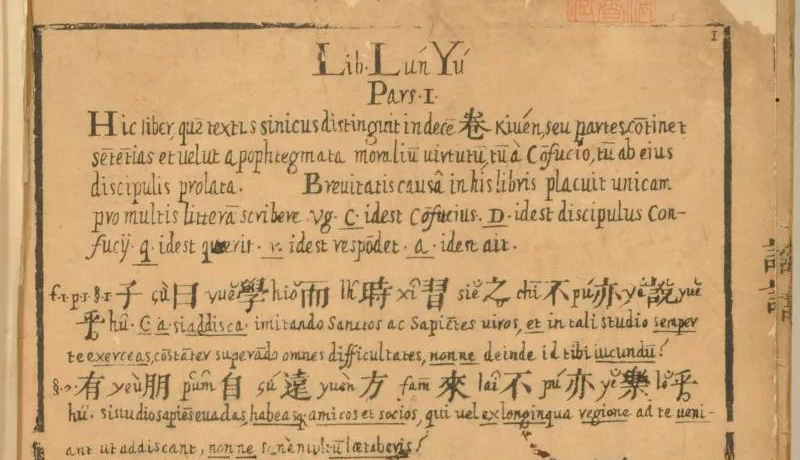 1
Lib. Lún Yú
Pars. I.
Hic liber, quē textus sinicus distinguit in decē 卷 Kiuén, seu partes, cōtinet
sētētias et uelut apophtegmata moraliū uirtutū, tū à Cōfucio, tū ab eius
discipulis prolata. Breuitatis causâ in his libris placuit unicam
pro multis litterā scribere Vg. C. idest Cōfucius. D. idest discipulus Con-
fucij. q. idest quærit. r. idest respōdet. a. idest ait.
f.1.p.1.§.1. 子 çù 曰 yuĕ 學 hiŏ 而 lh 時 xî 習 siĕ 之 chī 不 pŭ 亦 yĕ 說 yuĕ
乎 hû. C. a. si addisca. imitando Sanctos ac Sapiētes uiros, et in tali studio semper
te exerceas, cōstāter superādo omnes difficultates, nonne deinde id tibi iucundū?
§.2. 有 yeù 朋 pûm 自 çú 遠 yuèn 方 fam 來 laî 不 pŭ 亦 yĕ 樂 lŏ 乎
hû. si studio sapiēs euadas, habeasq. amicos et socios, qui uel ex longinqua regione ad te ueni-
ant ut addiscant, nonne lætaberis?
論
語